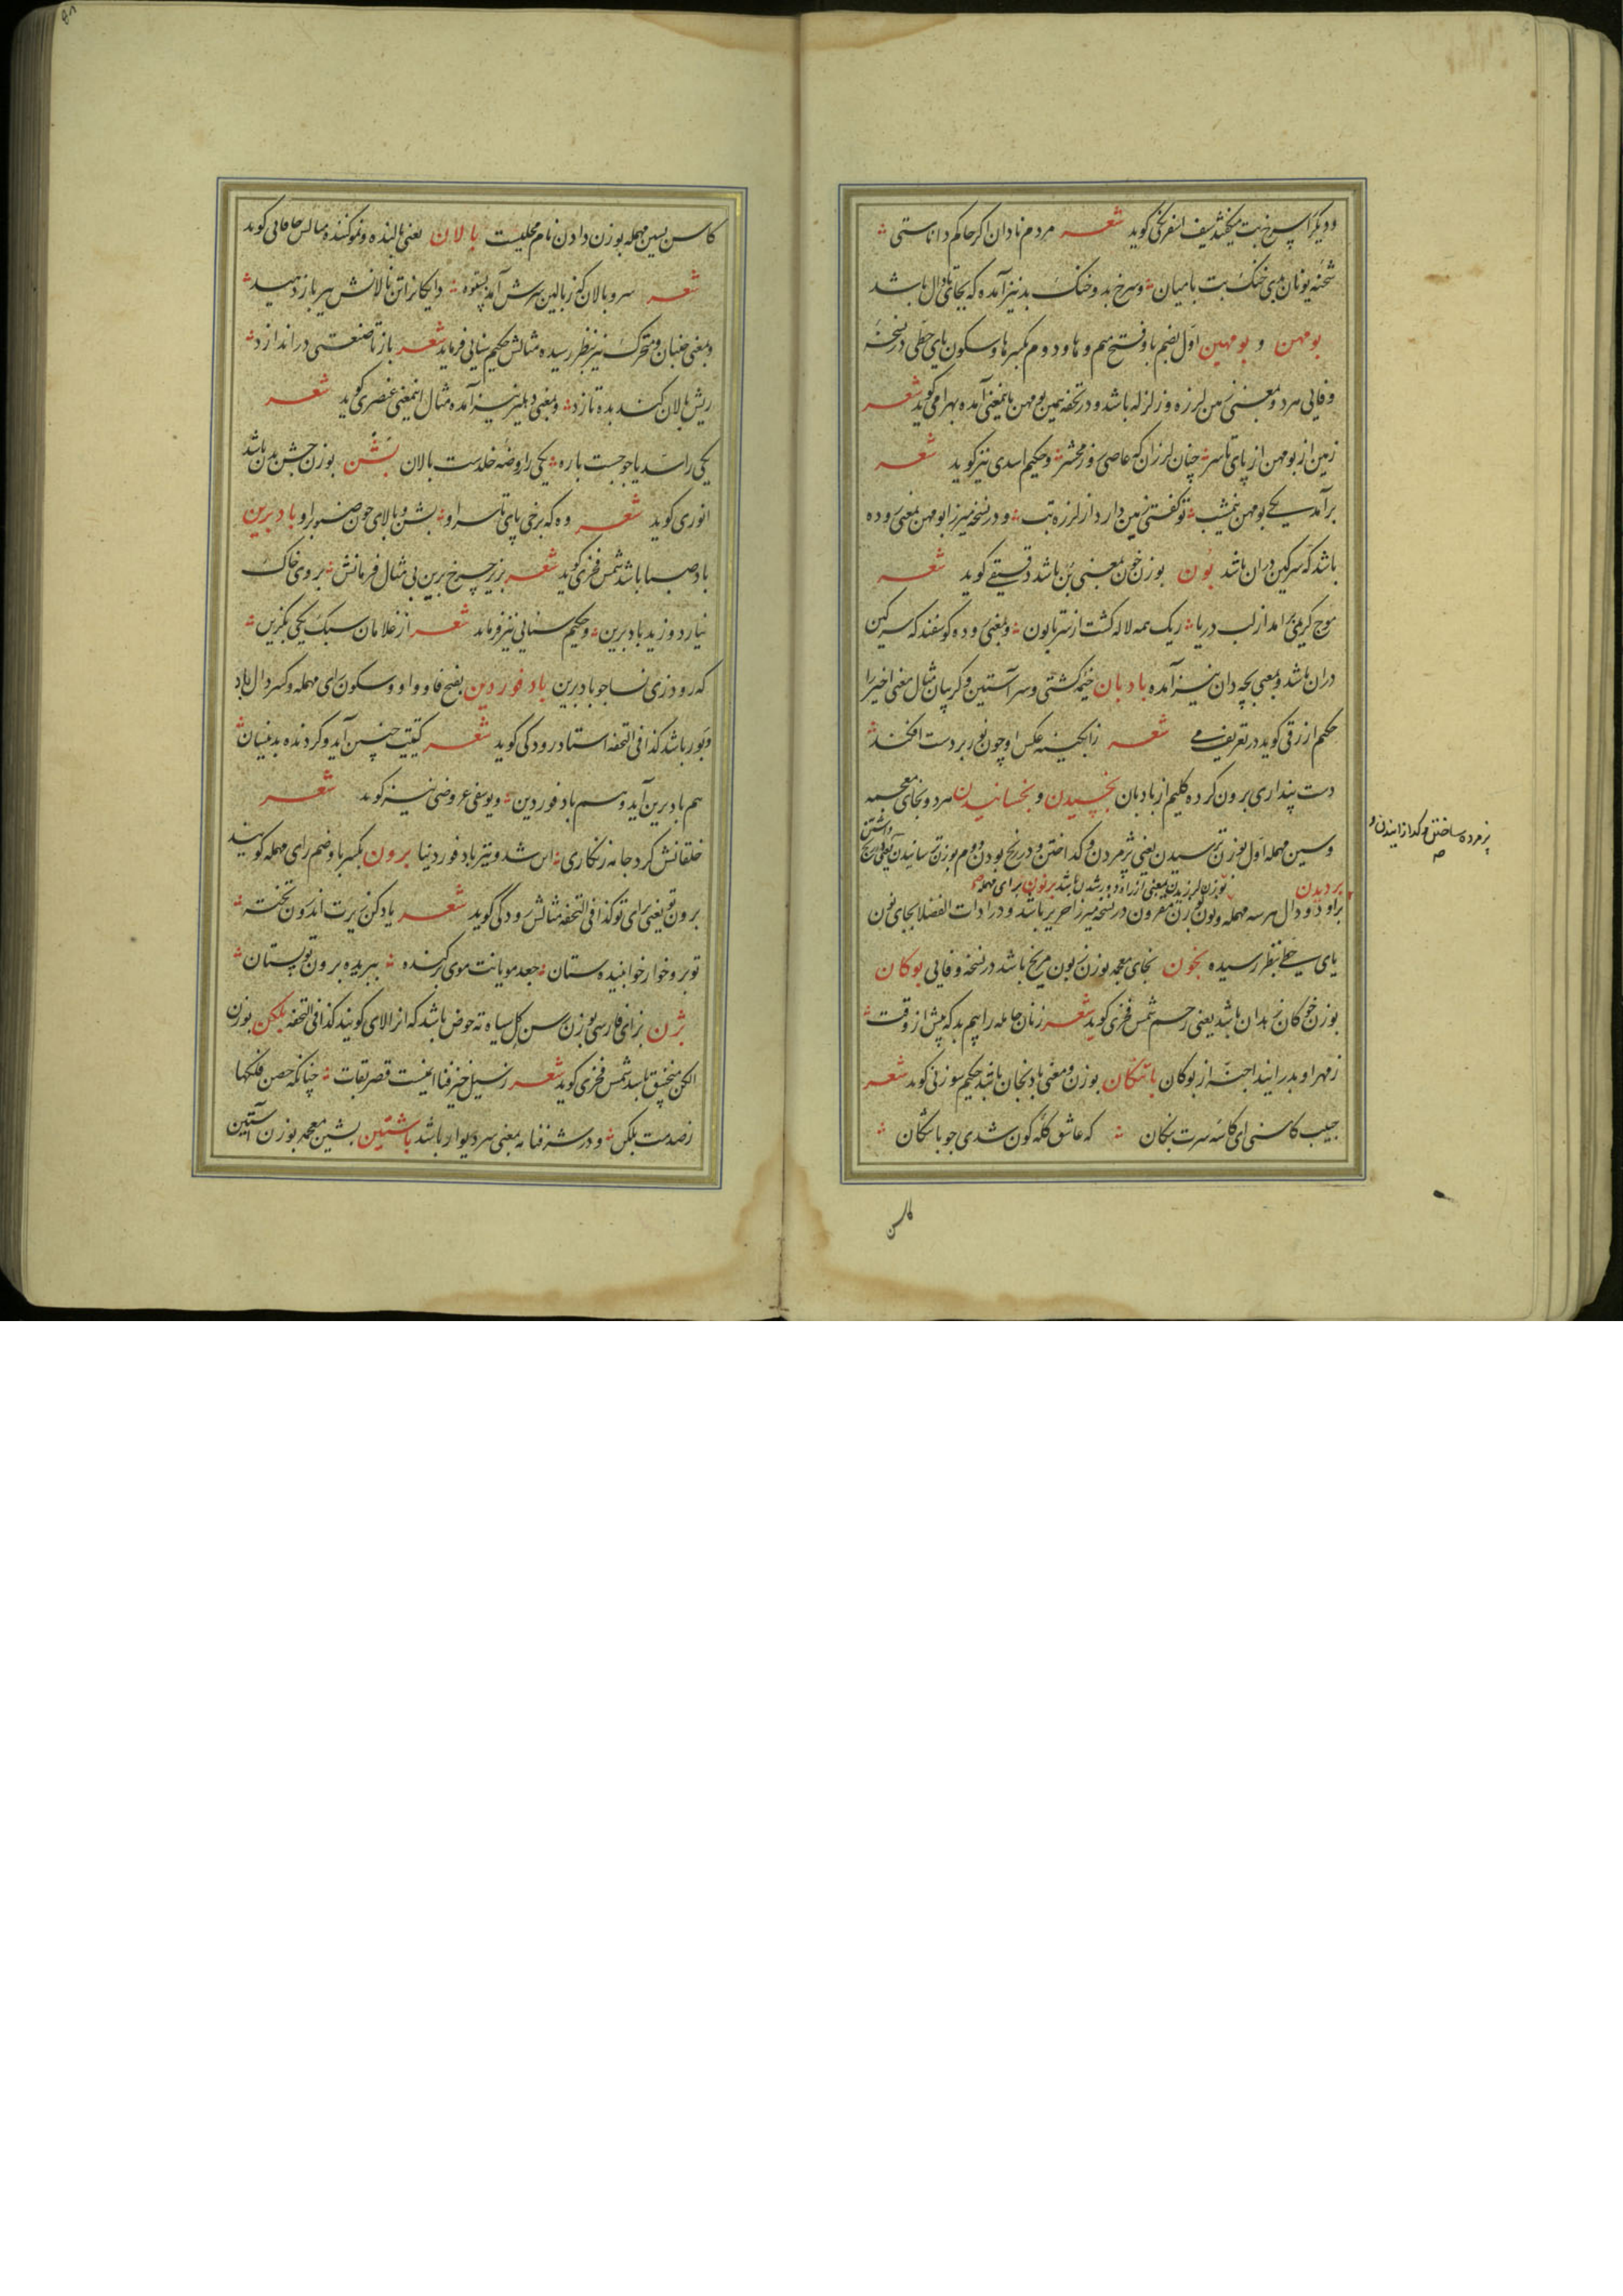 ودیکر را سرخ بت میکفتند سیف اسفرنکی کوید شعر مردم نادان اکر حاکم داناستی
شحنه یونان بدی خنک بت بامیان و سرخ بد و خنک بد نیز آمده که بجای تا دال باشد
بومهن و بومهین اول بضم با و فتح میم و ها و دوم بکسر ها و سکون یای حطی در نسخهٔ
وفایی هر دو بمعنی زمین لرزه و زلزله باشد و در تحفه همین بومهن باینمعنی آمده بهرامی کوید شعر
زمین از بومهن از پای تا سر چنان لرزان که عاصی روز محشر و حکیم اسدی نیز کوید شعر
برآمد یکی بومهن نیمشب تو کفتی زمین دارد از لرزه تب و در نسخه میرزا بومهن بمعنی روده
باشد که سرکین دران باشد بون بوزن خون بمعنی بن باشد دقیقی کوید شعر
موج کریمی برآمد از لب دریا ریک همه لاله کشت از سر تا بون و بمعنی روده کوسفند که سرکین
دران باشد و بمعنی بچه دان نیز آمده بادبان خیمه کشتی و سر آستین و کریبان مثال معنی اخیر را
حکیم ازرقی کوید در تعریف می شعر زابکینه عکس او چون نور بر دست افکند
دست پنداری برون کرده کلیم از بادبان بخسیدن و بخسانیدن هر دو بخای معجمه
وسین مهمله اول بوزن ترسیدن یعنی پژمردن و کداختن و در رنج بودن و دوم بوزن ترسانیدن یعنی در رنج داشتن
پژمرده ساختن و کدازانیدن و
بردیدن بوزن لرزیدن بمعنی از راه دور شدن باشد برنون برای مهمله
براو و دال هر سه مهمله و نون بوزن معرون در نسخه میرزا حریر باشد و در ادات الفضلا بجای نون
یای حطی بنظر رسیده بخون بخای معجمه بوزن زبون مریخ باشد در نسخه وفایی بوکان
بوزن خوکان زهدان باشد یعنی رحم شمس فخری کوید شعر زنان حامله را بیم بد که پیش از وقت
ز مهر او بدر آیند اجنه از بوکان باتنکان بوزن و معنی بادنجان باشد حکیم سوزنی کوید شعر
جیب کاسنی ای کاسه سرت بنکان که عاشق کله کون شدی چو باتنکان
کاسن
کاسن بسین مهمله بوزن دادن نام محلیست بالان یعنی بالنده و نمو کننده مثالش خاقانی کوید
شعر سرو بالان که ز بالین سرش آمد بستوه دایکان را تن نالانش ببر باز دهید
و بمعنی جنبان و متحرک نیز بنظر رسیده مثالش حکیم سنایی فرماید شعر باز تا صنعتی در اندازد
ریش بالان کند بده تازد و بمعنی دهلیز نیز آمده مثال اینمعنی عنصری کوید شعر
یکی را سد یاجوجست باره یکی را روضه خلدست بالان بشن بوزن جشن بدن باشد
انوری کوید شعر وه که برخی پای تا سر او بشن و بالای چون صنوبر او بادبرین
باد صبا باشد شمس فخری کوید شعر بزیر چرخ برین بی مثال فرمانش بروی خاک
نیارد وزید بادبرین و حکیم سنایی نیز فرماید شعر از غلامان سبک یکی بکزین
که رود زی نسا چو بادبرین بادفوردین بفتح فا و واو و سکون رای مهمله و کسر دال باد
دبور باشد کذا فی التحفه استاد رودکی کوید شعر کیتیت چنین آید و کردنده بدینسان
هم بادبرین آید و هم بادفوردین و یوسفی عروضی نیز کوید شعر
خلقانش کرد جامه زنکاری این شد و تیز بادفوردینا برون بکسر با و ضم رای مهمله کویند
برون تو یعنی برای تو کذا فی التحفه مثالش رودکی کوید شعر یاد کن زیرت اندرون تختـه
تو برو خوار خوابنیده ستان جعد مویانت موی برکنده ببریده برون تو پستان
بژن بزای فارسی بوزن رسن کل سیاه ته حوض باشد که انرا لای کویند کذا فی التحفه بلکن بوزن
الکن منجنیق باشد شمس فخری کوید شعر ز سیل خیز فنا ایمنست قصر بقات چنانکه حصن فلکها
ز صدمت بلکن و در شرفنامه بمعنی سر دیوار باشد باشتین بشین معجمه بوزن آستین